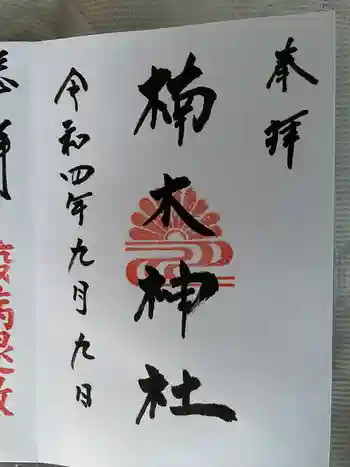 奉拝
楠木神社
令和四年九月九日